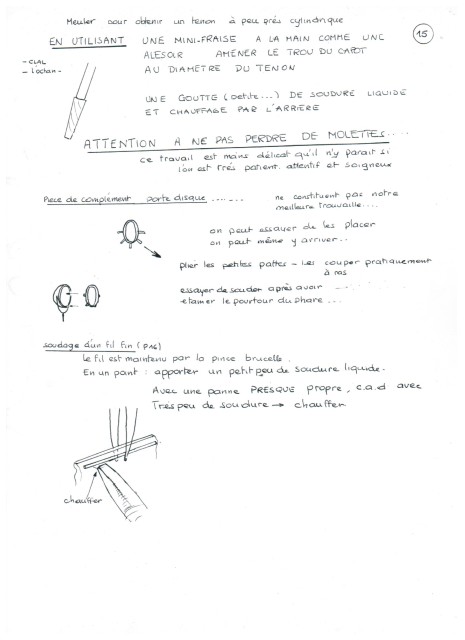 Meuler pour obtenir un tenon à peu près cylindrique
15
EN UTILISANT UNE MINI-FRAISE A LA MAIN COMME UNE
ALESOIR AMENER LE TROU DU CAPOT
AU DIAMETRE DU TENON
- CLAL
- Loctan -
UNE GOUTTE (petite...) DE SOUDURE LIQUIDE
ET CHAUFFAGE PAR L'ARRIERE
ATTENTION A NE PAS PERDRE DE MOLETTES.....
ce travail est moins délicat qu'il n'y parait si
l'on est très patient. attentif et soigneux
Piece de complément porte disque ......
ne constituent pas notre
meilleure trouvaille....
on peut essayer de les placer
on peut même y arriver..
plier les petites pattes - les couper pratiquement
à ras
essayer de souder après avoir
etamer le pourtour du phare ...
soudage d'un fil fin (p16)
Le fil est maintenu par la pince brucelle.
En un point : apporter un petit peu de soudure liquide.
Avec une panne PRESQUE propre, c.a.d avec
Très peu de soudure → chauffer
chauffer